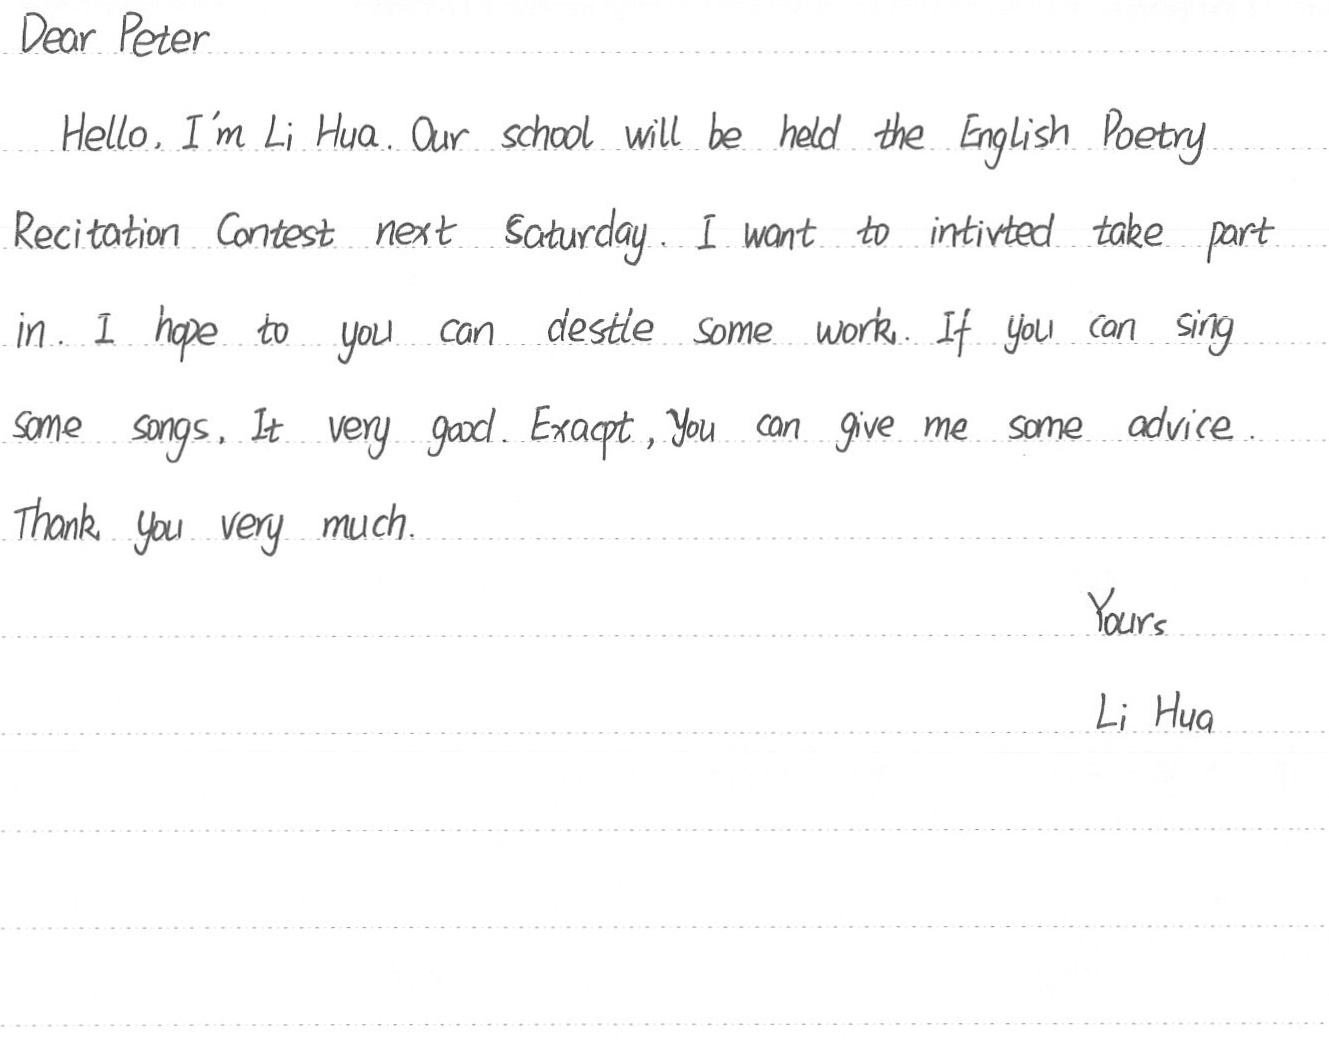 Dear Peter
Hello, I'm Li Hua. Our school will be held the English Poetry
Recitation Contest next Saturday. I want to intivted take part
in. I hope to you can destle some work. If you can sing
some songs, It very good. Exacpt, you can give me some advice.
Thank you very much.
Yours
Li Hua